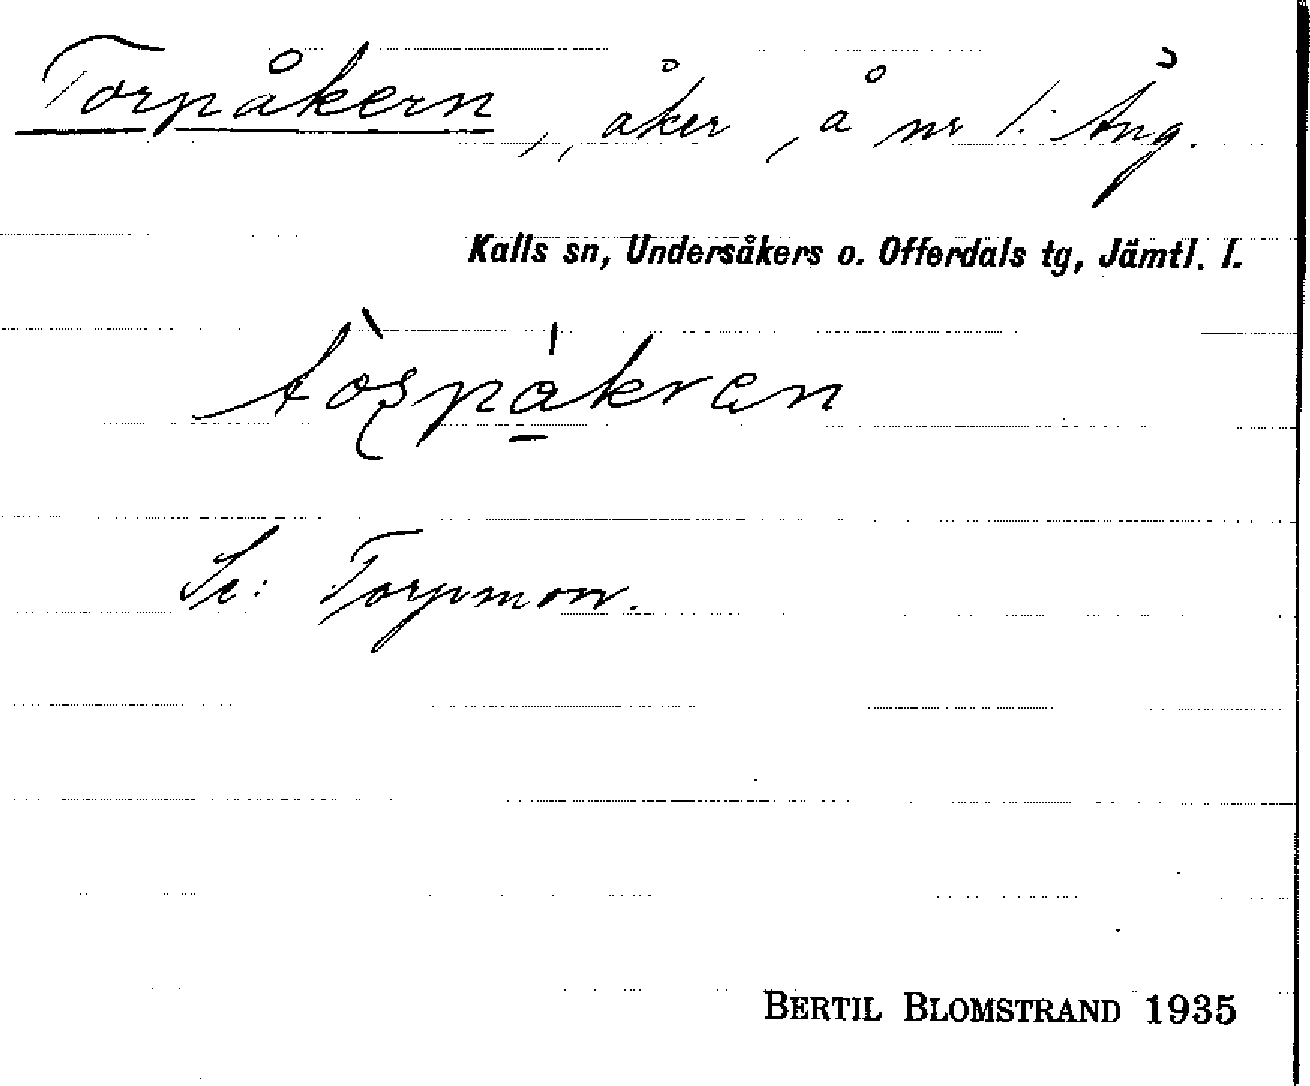 Torpåkern, åker, å nr 1: Äng.
Kalls sn, Undersåkers o. Offerdals tg, Jämtl. l.
Se: Torpmon.
BERTIL BLOMSTRAND 1935